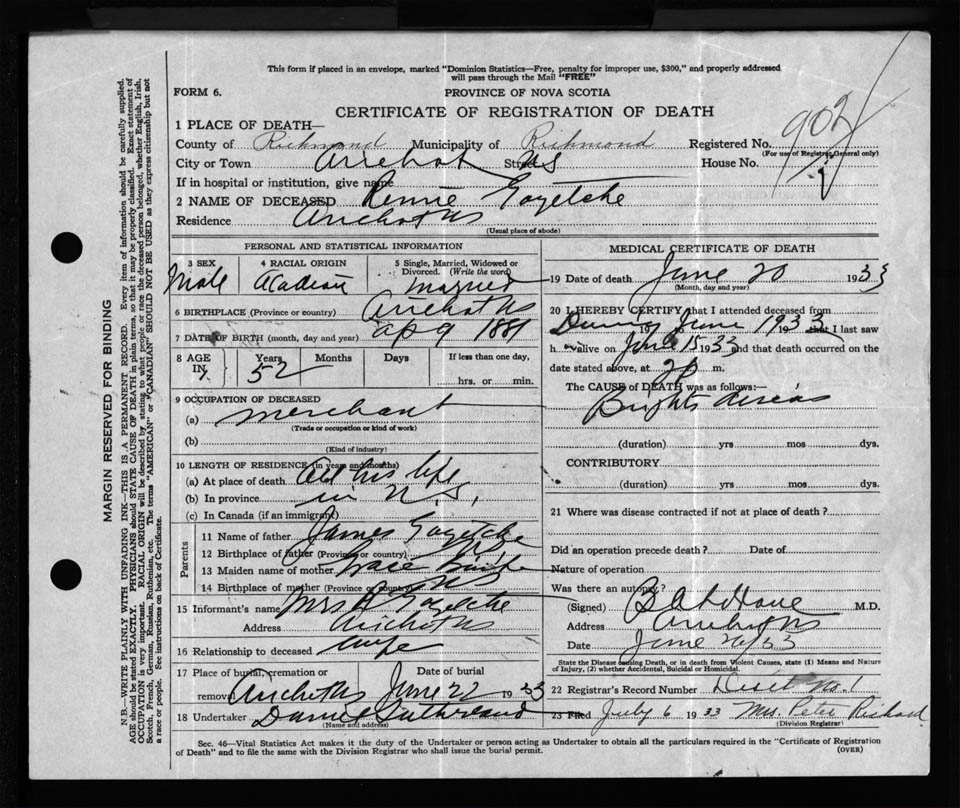 This form if placed in an envelope, marked "Dominion Statistics—Free, penalty for improper use, $300," and properly addressed
will pass through the Mail "FREE"
FORM 6.
PROVINCE OF NOVA SCOTIA
CERTIFICATE OF REGISTRATION OF DEATH
902
1 PLACE OF DEATH—
County of Richmond Municipality of Richmond Registered No.
(For use of Registrar General only)
City or Town Arichat Street NS House No.
If in hospital or institution, give name
2 NAME OF DECEASED Rennie Goyetche
Residence Arichat NS
(Usual place of abode)
PERSONAL AND STATISTICAL INFORMATION
3 SEX 4 RACIAL ORIGIN 5 Single, Married, Widowed or
Divorced. (Write the word)
Male Acadian married
6 BIRTHPLACE (Province or country) Arichat NS
7 DATE OF BIRTH (month, day and year) ap 9 1881
8 AGE Years Months Days If less than one day,
IN 52
hrs. or min.
9 OCCUPATION OF DECEASED
(a) merchant
(Trade or occupation or kind of work)
(b)
(Kind of industry)
10 LENGTH OF RESIDENCE (in years and months)
(a) At place of death all his life
(b) In province in N.S,
(c) In Canada (if an immigrant)
Parents
11 Name of father James Goyetche
12 Birthplace of father (Province or country)
13 Maiden name of mother Grace
14 Birthplace of mother (Province or country) NS
15 Informant's name Mrs R Goyetche
Address Arichat NS
16 Relationship to deceased wife
17 Place of burial, cremation or Date of burial
removal Arichat NS June 22 1933
18 Undertaker Daniel Sutherland
(Name and address)
MEDICAL CERTIFICATE OF DEATH
19 Date of death June 20 1933
(Month, day and year)
20 I HEREBY CERTIFY that I attended deceased from
During June 1933 that I last saw
h alive on June 15 1933 and that death occurred on the
date stated above, at 2 p m.
The CAUSE of DEATH was as follows:—
Brights diseas
(duration) yrs mos dys.
CONTRIBUTORY
(duration) yrs mos dys.
21 Where was disease contracted if not at place of death?
Did an operation precede death? Date of
Nature of operation
Was there an autopsy?
(Signed) M.D.
Address Arichat NS
Date June 20/33
State the Disease causing Death, or in death from Violent Causes, state (1) Means and Nature
of Injury, (2) whether Accidental, Suicidal or Homicidal.
22 Registrar's Record Number Disct No. 1
23 Filed July 6 1933 Mrs. Peter Richard
(Division Registrar)
Sec. 46—Vital Statistics Act makes it the duty of the Undertaker or person acting as Undertaker to obtain all the particulars required in the "Certificate of Registration
of Death" and to file the same with the Division Registrar who shall issue the burial permit.
(OVER)
MARGIN RESERVED FOR BINDING
N.B.—WRITE PLAINLY WITH UNFADING INK—THIS IS A PERMANENT RECORD. Every item of information should be carefully supplied.
AGE should be stated EXACTLY. PHYSICIANS should STATE CAUSE OF DEATH in plain terms, so that it may be properly classified. Exact statement of
OCCUPATION is very important. RACIAL ORIGIN will be described by stating to what people or race the deceased person belonged, whether English, Irish,
Scotch, French, German, Russian, Ruthenian, etc. The terms "AMERICAN" or "CANADIAN" SHOULD NOT BE USED as they express citizenship but not
a race or people. See instructions on back of Certificate.